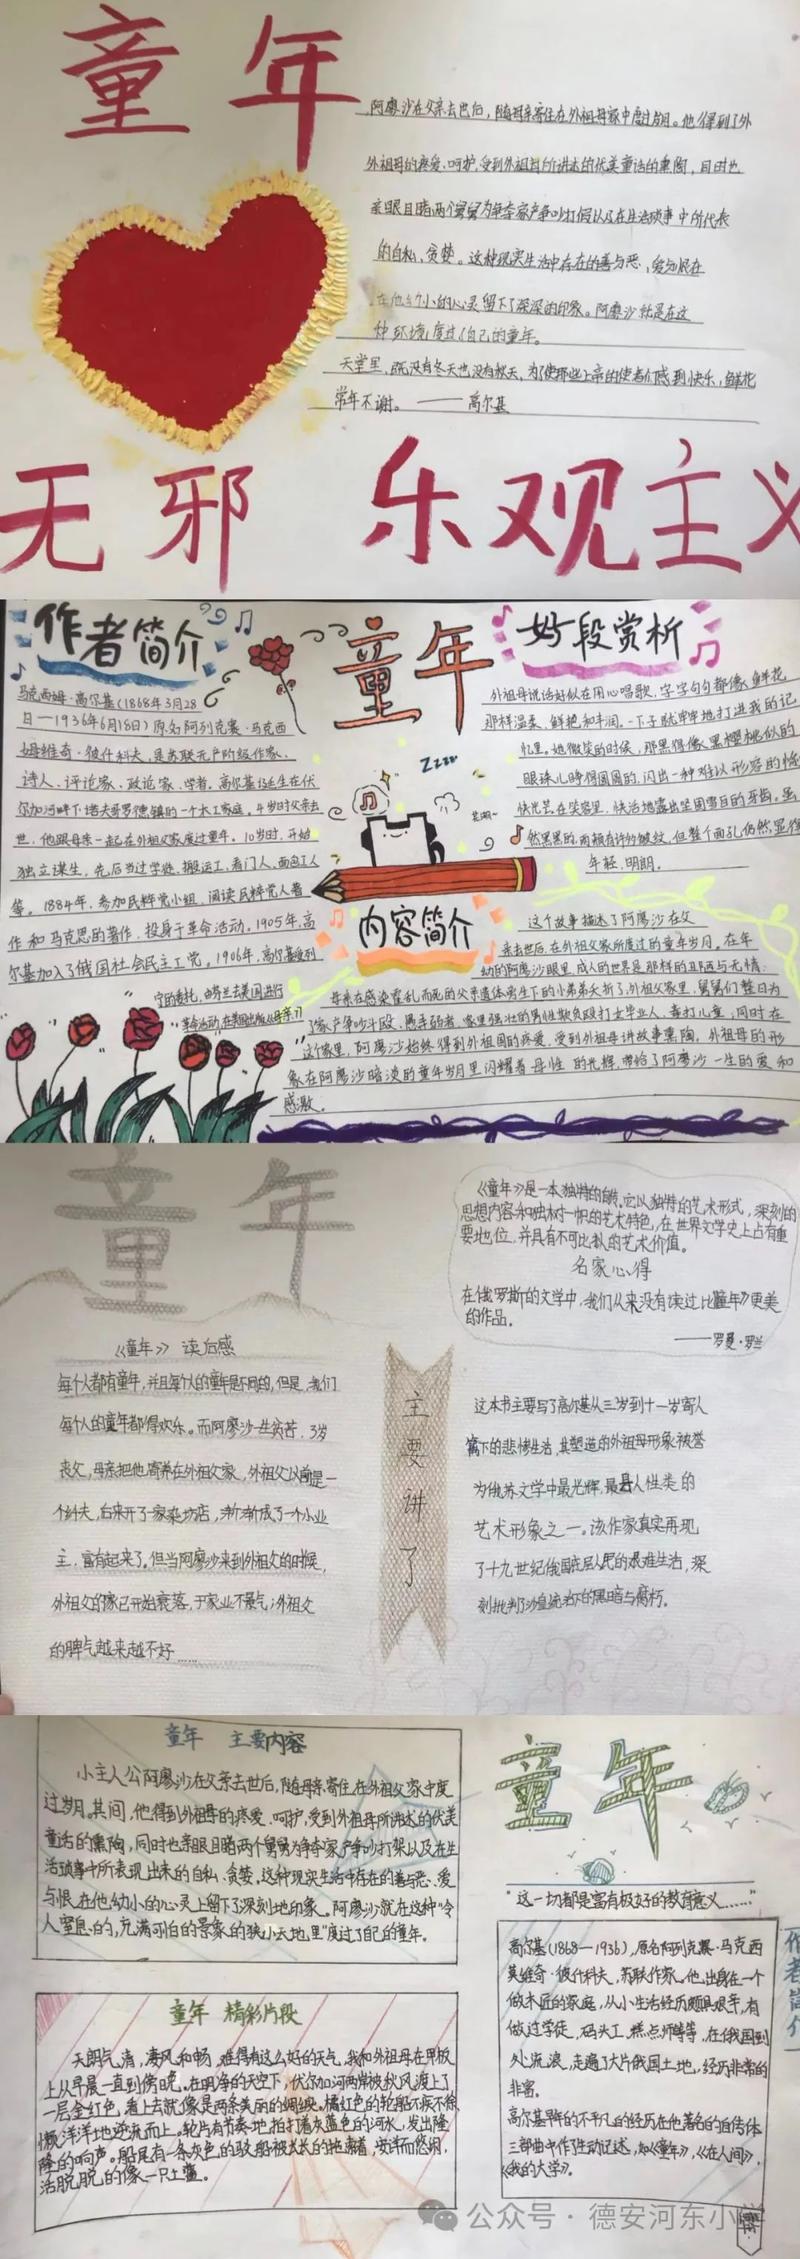 童年
阿廖沙在父亲去世后，随母亲寄住在外祖母家中度过岁月。他得到了外
外祖母的疼爱、呵护,受到外祖母所讲述的优美童话的熏陶，同时也
亲眼目睹两个舅舅为争夺家产争吵打假以及在生活琐事中所代表
的自私、贪婪。这种现实生活中存在的善与恶、爱与恨在
在他幼小的心灵留下了深深的印象。阿廖沙就是在这
种环境度过了自己的童年。
天堂里，既没有冬天也没有秋天，为了使那些上帝的使者们感到快乐，鲜花
常年不谢。——高尔基
无邪 乐观主义
作者简介
马克西姆·高尔基(1868年3月28
日—1936年6月18日)原名阿列克赛·马克西
姆维奇·彼什科夫，是苏联无产阶级作家、
诗人、评论家、政论家、学者。高尔基诞生在伏
尔加河畔下·诺夫哥罗德镇的一个木工家庭。4岁时父亲去
世，他跟母亲一起在外祖父家度过童年。10岁时，开始
独立谋生。先后当过学徒、搬运工、看门人、面包工人
等。1884年，参加民粹党小组，阅读民粹党人著
作和马克思的著作，投身于革命活动。1905年，高
尔基加入了俄国社会民主工党。1906年，高尔基受列
宁的委托，由芬兰去美国进行
革命活动,在美国出版《母亲》
童年
Zzzz
好段赏析
外祖母说话好似在用心唱歌，字字句句都像鲜花
那样温柔、鲜艳和丰润。一下子就牢牢地打进我的记
忆里。她微笑的时候，那黑得像黑樱桃似的
眼珠儿睁得圆圆的，闪出一种难以形容的愉
快光芒，在笑容里，快活地露出坚固雪白的牙齿。虽
然黑黑的两颊有许多皱纹，但整个面孔仍然显得
年轻，明朗。
内容简介
这个故事描述了阿廖沙在父
亲去世后，在外祖父家所度过的童年岁月。在年
幼的阿廖沙眼里，成人的世界是那样的丑陋与无情：
母亲在感染霍乱而死的父亲遗体旁生下的小弟弟夭折了，外祖父家里，舅舅们整日为
了家产争吵斗殴、愚弄弱者、家里强壮的男性欺负殴打女毕业人、毒打儿童，同时在
这个家里，阿廖沙始终得到外祖国的疼爱，受到外祖母讲故事熏陶，外祖母的形
象在阿廖沙暗淡的童年岁月里闪耀着母性的光辉，带给了阿廖沙一生的爱和
感激。
童年
《童年》是一本独特的自转。它以独特的艺术形式，深刻的
思想内容和独树一帜的艺术特色，在世界文学史上占有重
要地位，并具有不可比拟的艺术价值。
名家心得
在俄罗斯的文学中，我们从来没有读过比《童年》更美
的作品。
——罗曼·罗兰
《童年》读后感
每个人都有童年，并且每个人的童年是不同的，但是，我们
每个人的童年都得欢乐。而阿廖沙一生贫苦，3岁
丧父，母亲把他寄养在外祖父家，外祖父以前是一
个纤夫，后来开了一家染坊店，渐渐成了一个小业
主，富有起来了。但当阿廖沙来到外祖父的时候，
外祖父的家已开始衰落，于家业不景气，外祖父
的脾气越来越不好……
主要讲了
这本书主要写了高尔基从三岁到十一岁寄人
篱下的悲惨生活，其塑造的外祖母形象被誉
为俄苏文学中最光辉，最具人性类的
艺术形象之一。该作家真实再现
了十九世纪俄国底层人民的艰难生活，深
刻批判了沙皇统治下的黑暗与腐朽。
童年 主要内容
小主人公阿廖沙在父亲去世后，随母亲寄住在外祖父家中度
过岁月，其间，他得到外祖母的疼爱、呵护，受到外祖母所讲述的优美
童话的熏陶，同时也亲眼目睹两个舅舅为争夺家产争吵打架以及在生
活琐事中所表现出来的自私、贪婪，这种现实生活中存在的善与恶、爱
与恨在他幼小的心灵上留下了深刻地印象。阿廖沙就在这种“令
人窒息的，充满可怕的景象的狭小天地里”度过了自己的童年。
童年 精彩片段
天朗气清，凄风和畅，难得有这么好的天气，我和外祖母在甲板
上从早晨一直到傍晚。在明净的天空下，优尔加河两岸被秋风渡上了
一层金红色，看上去就像是两条美丽的绸缎。橘红色的轮船不疾不徐
懒洋洋地逆流而上。轮片有节奏地拍打着灰蓝色的河水，发出隆
隆的响声。船尾有一条灰色的驳船被长长的拖索着，安详而悠闲，
活脱脱的像一只土鳖。
童年
“这一切都是富有极好的教育意义……”
作者简介
高尔基(1868—1936)，原名阿列克赛·马克西
莫维奇·彼什科夫，苏联作家。他出身在一个
做木匠的家庭，从小生活经历颇具艰辛，有
做过学徒，码头工，糕点师等等，在俄国到
处流浪，走遍了大片俄国土地，经历非常的
非富。
高尔基早年的不平凡的经历在他著名的自传体
三部曲中作了生动记述，如《童年》，《在人间》，
《我的大学》。
公众号·德安河东小